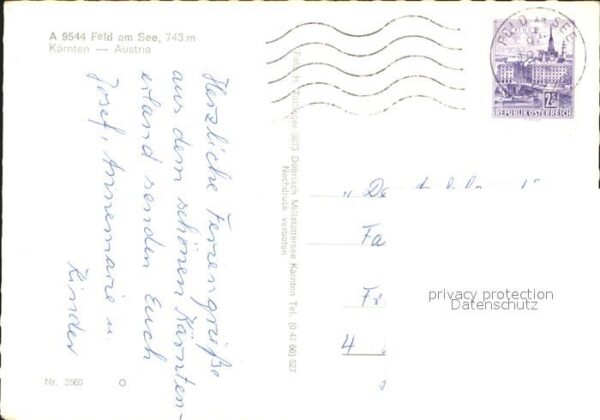 A 9544 Feld am See, 743 m
Kärnten — Austria
Herzliche Feriengrüße
aus dem schönen Kärnten-
erland senden Euch
Josef, Annemarie u
Kinder
Nr. 5560
Foto H. 9873 Döbriach Millstättersee Kärnten Tel. (0 42 66) 527
Nachdruck verboten
FELD AM SEE
2S
REPUBLIK ÖSTERREICH
Fa
Fr
4
privacy protection
Datenschutz